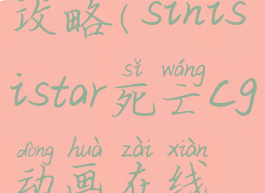 攻略(sinis
sǐ wáng
istar死亡cg
dòng huà zài xiàn
动画在线